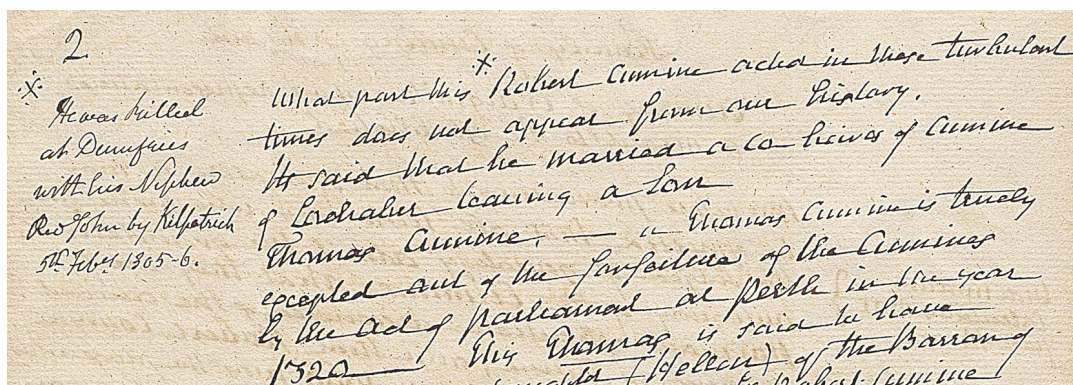 2
※
He was killed
at Dumfries
with his Nephew
Red John by Kilpatrick
5th Febry 1305-6.
What part this ※ Robert Cumine acted in these turbulent
times does not appear from our history.
Its said that he married a co heires of Cumine
of Lochaber leaving a son
Thomas Cumine, — a Thomas Cumine is truely
excepted out of the forfeiture of the Cumines
by the Act of parliament at Perth in the year
1320 — This Thomas is said to have
(Hellen) of the Barron of
Robert Cumine